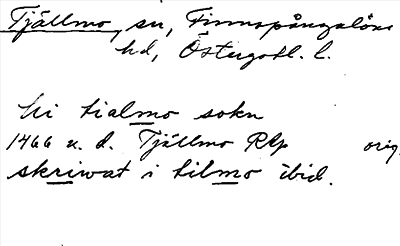 Tjällmo, sn, Finnspångaläns
hd, Östergötl. l.
Ui tialmo sokn
1466 u. d. Tjällmo RAp orig.
skriwat i tilmo ibid.